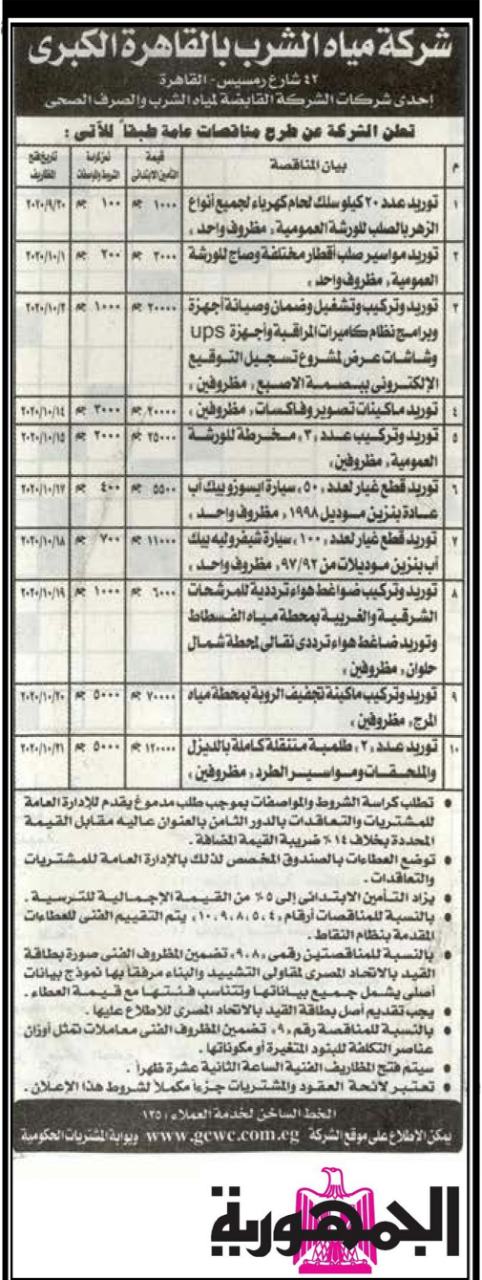 شركة مياه الشرب بالقاهرة الكبرى
٤٢ شارع رمسيس - القاهرة
إحدى شركات الشركة القابضة لمياه الشرب والصرف الصحى
تعلن الشركة عن طرح مناقصات عامة طبقاً للآتى :
م بيان المناقصة قيمة التأمين الابتدائى ثمن كراسة الشروط والمواصفات تاريخ فتح المظاريف
١ توريد عدد ٢٠ كيلو سلك لحام كهرباء لجميع أنواع ١٠٠٠ ج ١٠٠ ج ٢٠٢٠/٩/٢٠
الزهر بالصلب للورشة العمومية، مظروف واحد،
٢ توريد مواسير صلب أقطار مختلفة وصاج للورشة ٢٠٠٠ ج ٢٠٠ ج ٢٠٢٠/١٠/١
العمومية، مظروف واحد،
٣ توريد وتركيب وتشغيل وضمان وصيانة أجهزة ٢٠٠٠٠ ج ١٠٠٠ ج
وبرامج نظام كاميرات المراقبة وأجهزة ups
وشاشات عرض لمشروع تسجيل التوقيع
الإلكترونى ببصمة الاصبع، مظروفين،
٤ توريد ماكينات تصوير وفاكسات، مظروفين، ٢٠٠٠٠٠ ج ٣٠٠٠ ج ٢٠٢٠/١٠/١٤
٥ توريد وتركيب عدد ،٣، مخرطة للورشة ٢٥٠٠٠ ج ٢٠٠٠ ج ٢٠٢٠/١٠/١٥
العمومية، مظروفين،
٦ توريد قطع غيار لعدد ،٥٠، سيارة ايسوزو بيك آب ٥٥٠٠ ج ٤٠٠ ج ٢٠٢٠/١٠/١٧
عادة بنزين موديل ١٩٩٨، مظروف واحد،
٧ توريد قطع غيار لعدد ،١٠٠، سيارة شيفروليه بيك ١١٠٠٠ ج ٧٠٠ ج ٢٠٢٠/١٠/١٨
آب بنزين موديلات من ٩٧/٩٢، مظروف واحد،
٨ توريد وتركيب ضواغط هواء ترددية للمرشحات ٦٠٠٠ ج ١٠٠٠ ج ٢٠٢٠/١٠/١٩
الشرقية والغربية بمحطة مياه الفسطاط
وتوريد ضاغط هواء ترددى نقالى لمحطة شمال
حلوان، مظروفين،
٩ توريد وتركيب ماكينة تجفيف الروبة بمحطة مياه ٧٠٠٠٠ ج ٥٠٠٠ ج ٢٠٢٠/١٠/٢٠
المرج، مظروفين،
١٠ توريد عدد ،٢، طلمبة متنقلة كاملة بالديزل ١٢٠٠٠٠ ج ٥٠٠٠ ج ٢٠٢٠/١٠/٢١
والملحقات ومواسير الطرد، مظروفين،
• تطلب كراسة الشروط والمواصفات بموجب طلب مدموغ يقدم للإدارة العامة
للمشتريات والتعاقدات بالدور الثامن بالعنوان عاليه مقابل القيمة
المحددة بخلاف ١٤٪ ضريبة القيمة المضافة .
• توضع العطاءات بالصندوق المخصص لذلك بالإدارة العامة للمشتريات
والتعاقدات .
• يزاد التأمين الابتدائى إلى ٥٪ من القيمة الإجمالية للترسية .
• بالنسبة للمناقصات أرقام، ٤، ٥، ٨، ٩، ١٠، يتم التقييم الفنى للعطاءات
المقدمة بنظام النقاط .
• بالنسبة للمناقصتين رقمى، ٨، ٩، تضمين المظروف الفنى صورة بطاقة
القيد بالاتحاد المصرى لمقاولى التشييد والبناء مرفقاً بها نموذج بيانات
أصلى يشمل جميع بياناتها وتتناسب فئتها مع قيمة العطاء .
• يجب تقديم أصل بطاقة القيد بالاتحاد المصرى للإطلاع عليها .
• بالنسبة للمناقصة رقم، ٩، تضمين المظروف الفنى معاملات تمثل أوزان
عناصر التكلفة للبنود المتغيرة أو مكوناتها .
• سيتم فتح المظاريف الفنية الساعة الثانية عشرة ظهراً .
• تعتبر لائحة العقود والمشتريات جزءاً مكملاً لشروط هذا الإعلان .
الخط الساخن لخدمة العملاء : ١٢٥
يمكن الاطلاع على موقع الشركة www.gcwc.com.eg وبوابة المشتريات الحكومية
الجمهورية